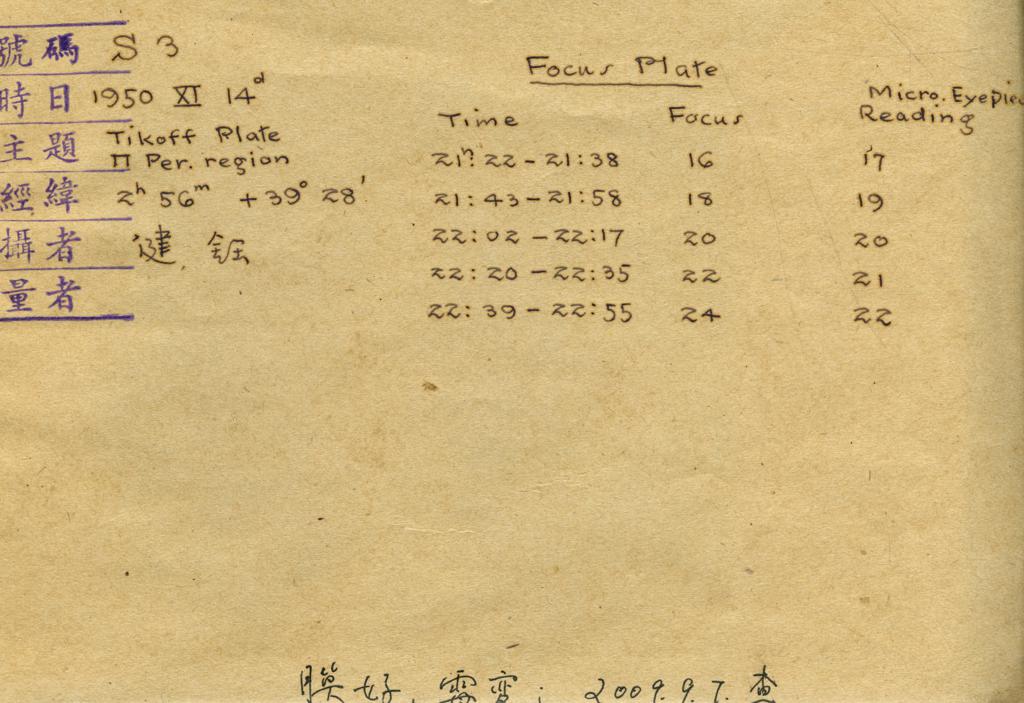 號碼 S 3
時日 1950 XI 14d
主題 Tikoff Plate
Π Per. region
經緯 2h 56m +39° 28'
攝者
量者
Focus Plate
Time Focus Micro. Eyepiec
Reading
21h: 22 – 21:38 16 17
21:43 – 21:58 18 19
22:02 – 22:17 20 20
22:20 – 22:35 22 21
22:39 – 22:55 24 22
膜好, 霉变; 2009.9.7. 查